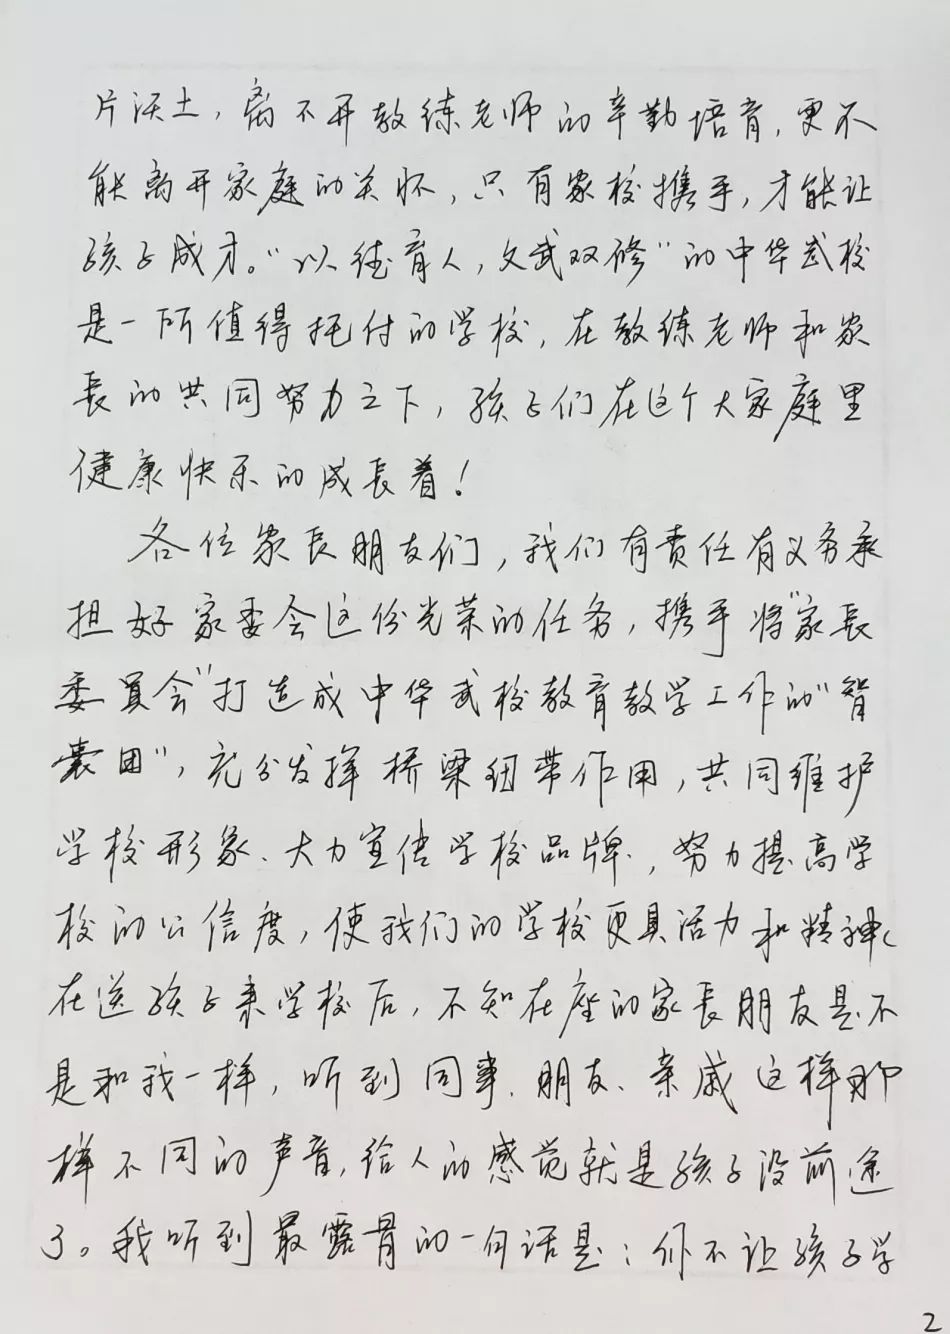 片沃土，离不开教练老师的辛勤培育，更不
能离开家庭的关怀，只有家校携手，才能让
孩子成才。“以德育人，文武双修”的中华武校
是一所值得托付的学校，在教练老师和家
长的共同努力之下，孩子们在这个大家庭里
健康快乐的成长着！
各位家长朋友们，我们有责任有义务承
担好家委会这份光荣的任务，携手将“家长
委员会”打造成中华武校教育教学工作的“智
囊团”，充分发挥桥梁纽带作用，共同维护
学校形象、大力宣传学校品牌，努力提高学
校的公信度，使我们的学校更具活力和精神。
在送孩子来学校后，不知在座的家长朋友是不
是和我一样，听到同事、朋友、亲戚这样那
样不同的声音，给人的感觉就是孩子没前途
了。我听到最露骨的一句话是：你不让孩子学
2